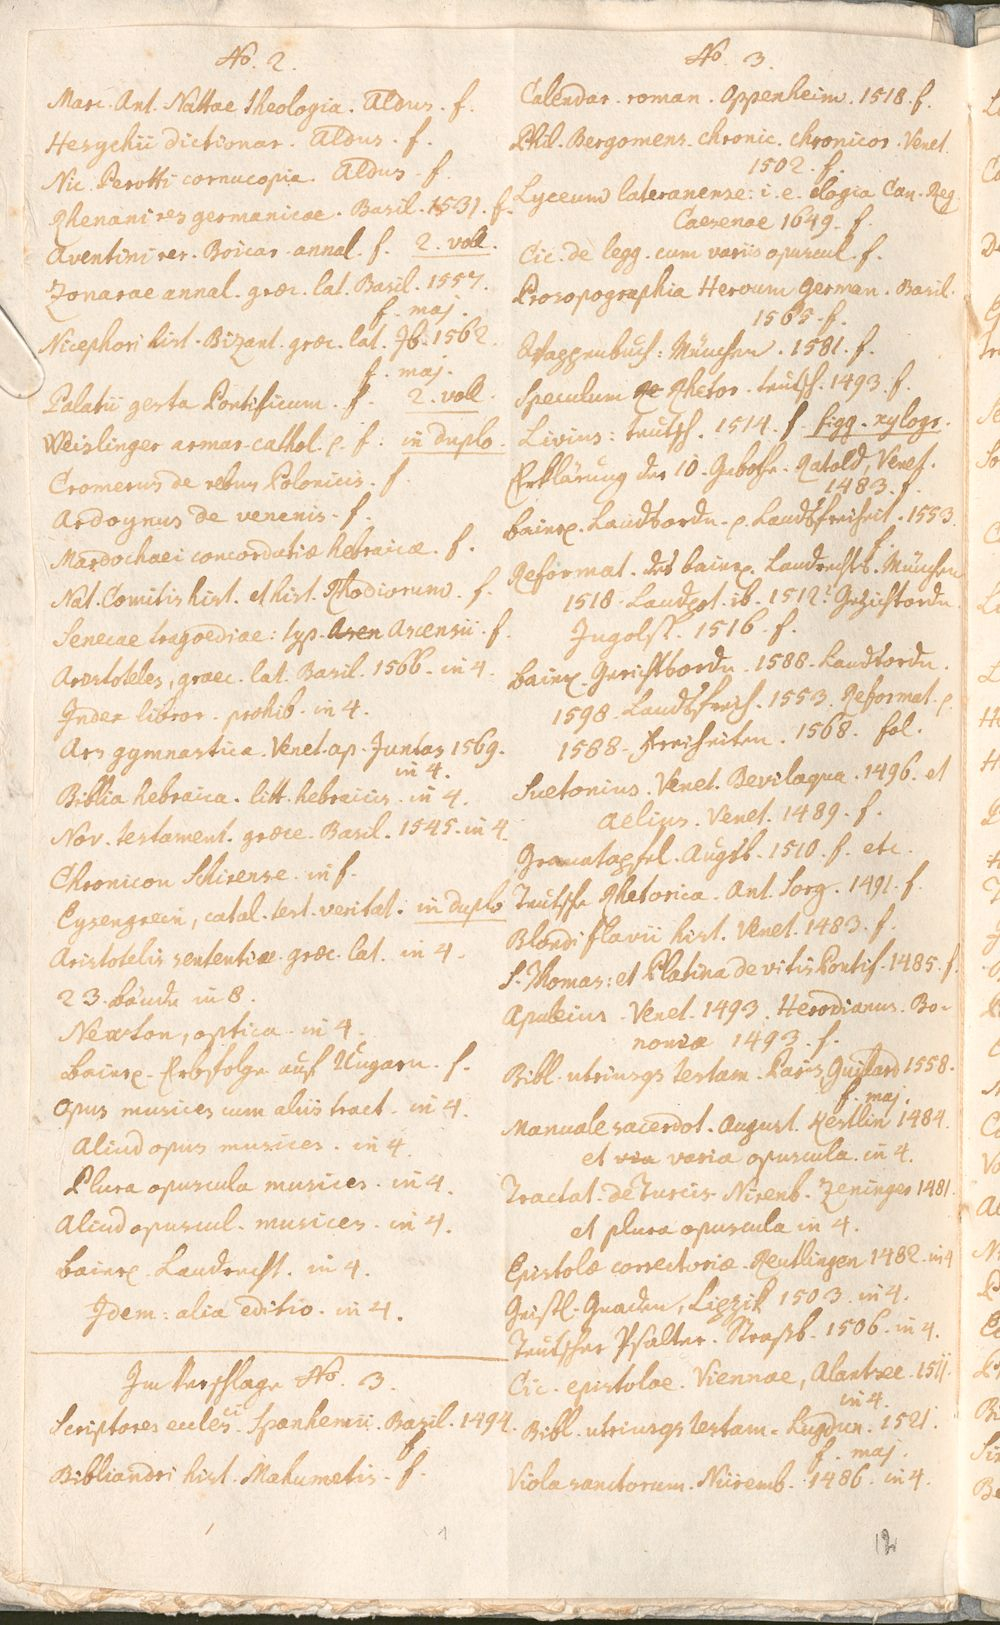 No. 2.
Marc. Ant. Nattae theologia. Aldus. f.
Hesychii dictionar. Aldus. f.
Nic. Perotti cornucopia. Aldus. f.
Rhenani res germanicae. Basil. 1531. f.
Aventini rer. Boicar. annal. f. 2. voll.
Zonarae annal. graec. lat. Basil. 1557.
f. maj.
Nicephori hist. Bizant. graec. lat. Ib. 1562.
f. maj.
Palatii gesta Pontificum. f. 2. voll.
Weislinger armar. cathol. p. f. in duplo.
Cromerus de rebus Polonicis. f.
Ardoynus de venenis. f.
Mardochaei concordatiae hebraicae. f.
Nat. Comitis hist. et hist. Rhodiorum. f.
Senecae tragoediae: typ. Asen Ascensii. f.
Aristoteles, graec. lat. Basil. 1566. in 4.
Index libror. prohib. in 4.
Ars gymnastica. Venet. ap. Juntas 1569.
in 4.
Biblia hebraica. litt. hebraicis. in 4.
Nov. testament. graec. Basil. 1545. in 4.
Chronicon Schirense. in f.
Eysengrein, catal. test. veritat. in duplo
Aristotelis sententiae. graec. lat. in 4.
23. Bände in 8.
Newton, optica. in 4.
Baier. Erbsfolge auf Ungarn. f.
Opus musices cum aliis tract. in 4.
Aliud opus musices. in 4.
Plura opuscula musices. in 4.
Aliud opuscul. musices. in 4.
Baier. Landrecht. in 4.
Idem: alia editio. in 4.
Im Verschlage No. 3.
Scriptores eccles.ci Spanhemii. Basil. 1494.
f.
Bibliandri hist. Mahumetis. f.
No. 3.
Calendar. roman. Oppenheim. 1518. f.
Phil. Bergomens. chronic. chronicor. Venet.
1502. f.
Lyceum lateranense: i. e. elogia Can. Reg.
Caesenae 1649. f.
Cic. de legg. cum variis opuscul. f.
Prosopographia Heroum German. Basil.
1565. f.
Wappenbuch: München. 1581. f.
Speculum Rhetor. teutsch. 1493. f.
Livius: teutsch. 1514. f. figg. xylogr.
Erklärung der 10. Gebothe. Ratold, Venet.
1483. f.
Baier. Landtsordn. p. Landtsfreiheit. 1553.
f.
Reformat. des baier. Landrechts. München
1518. Landpot. ib. 1512. Gerichtordn.
Ingolst. 1516. f.
Baier. Gerichtsordn. 1588. Landtsordn.
1598. Landtsfreih. 1553. Reformat. p.
1588. Freiheiten. 1568. fol.
Suetonius. Venet. Bevilaqua. 1496. et
Aelius. Venet. 1489. f.
Granatapfel. Augsb. 1510. f. etc.
Teutsche Rhetorica. Ant. Sorg. 1491. f.
Blondi flavii hist. Venet. 1483. f.
S. Thomas: et Platina de vitis Pontif. 1485. f.
Apuleius. Venet. 1493. Herodianus. Bo-
noniae 1493. f.
Bibl. utriusqs testam. Paris, Guilard 1558.
f. maj.
Manuale sacerdot. August. Kestlin 1484.
et via varia opuscula. in 4.
Tractat. de Turcis. Nirenb. Zeninger 1481.
et plura opuscula in 4.
Epistolae correctoriae. Reutlingen 1482. in 4
Geistl. Gnaden, Lipzik 1503. in 4.
Teutscher Psalter. Straßb. 1506. in 4.
Cic. epistolae. Viennae, Alantsee. 1511.
in 4.
Bibl. utriusqs testam. Lugdun. 1521.
f. maj.
Viola sanctorum. Nüremb. 1486. in 4.